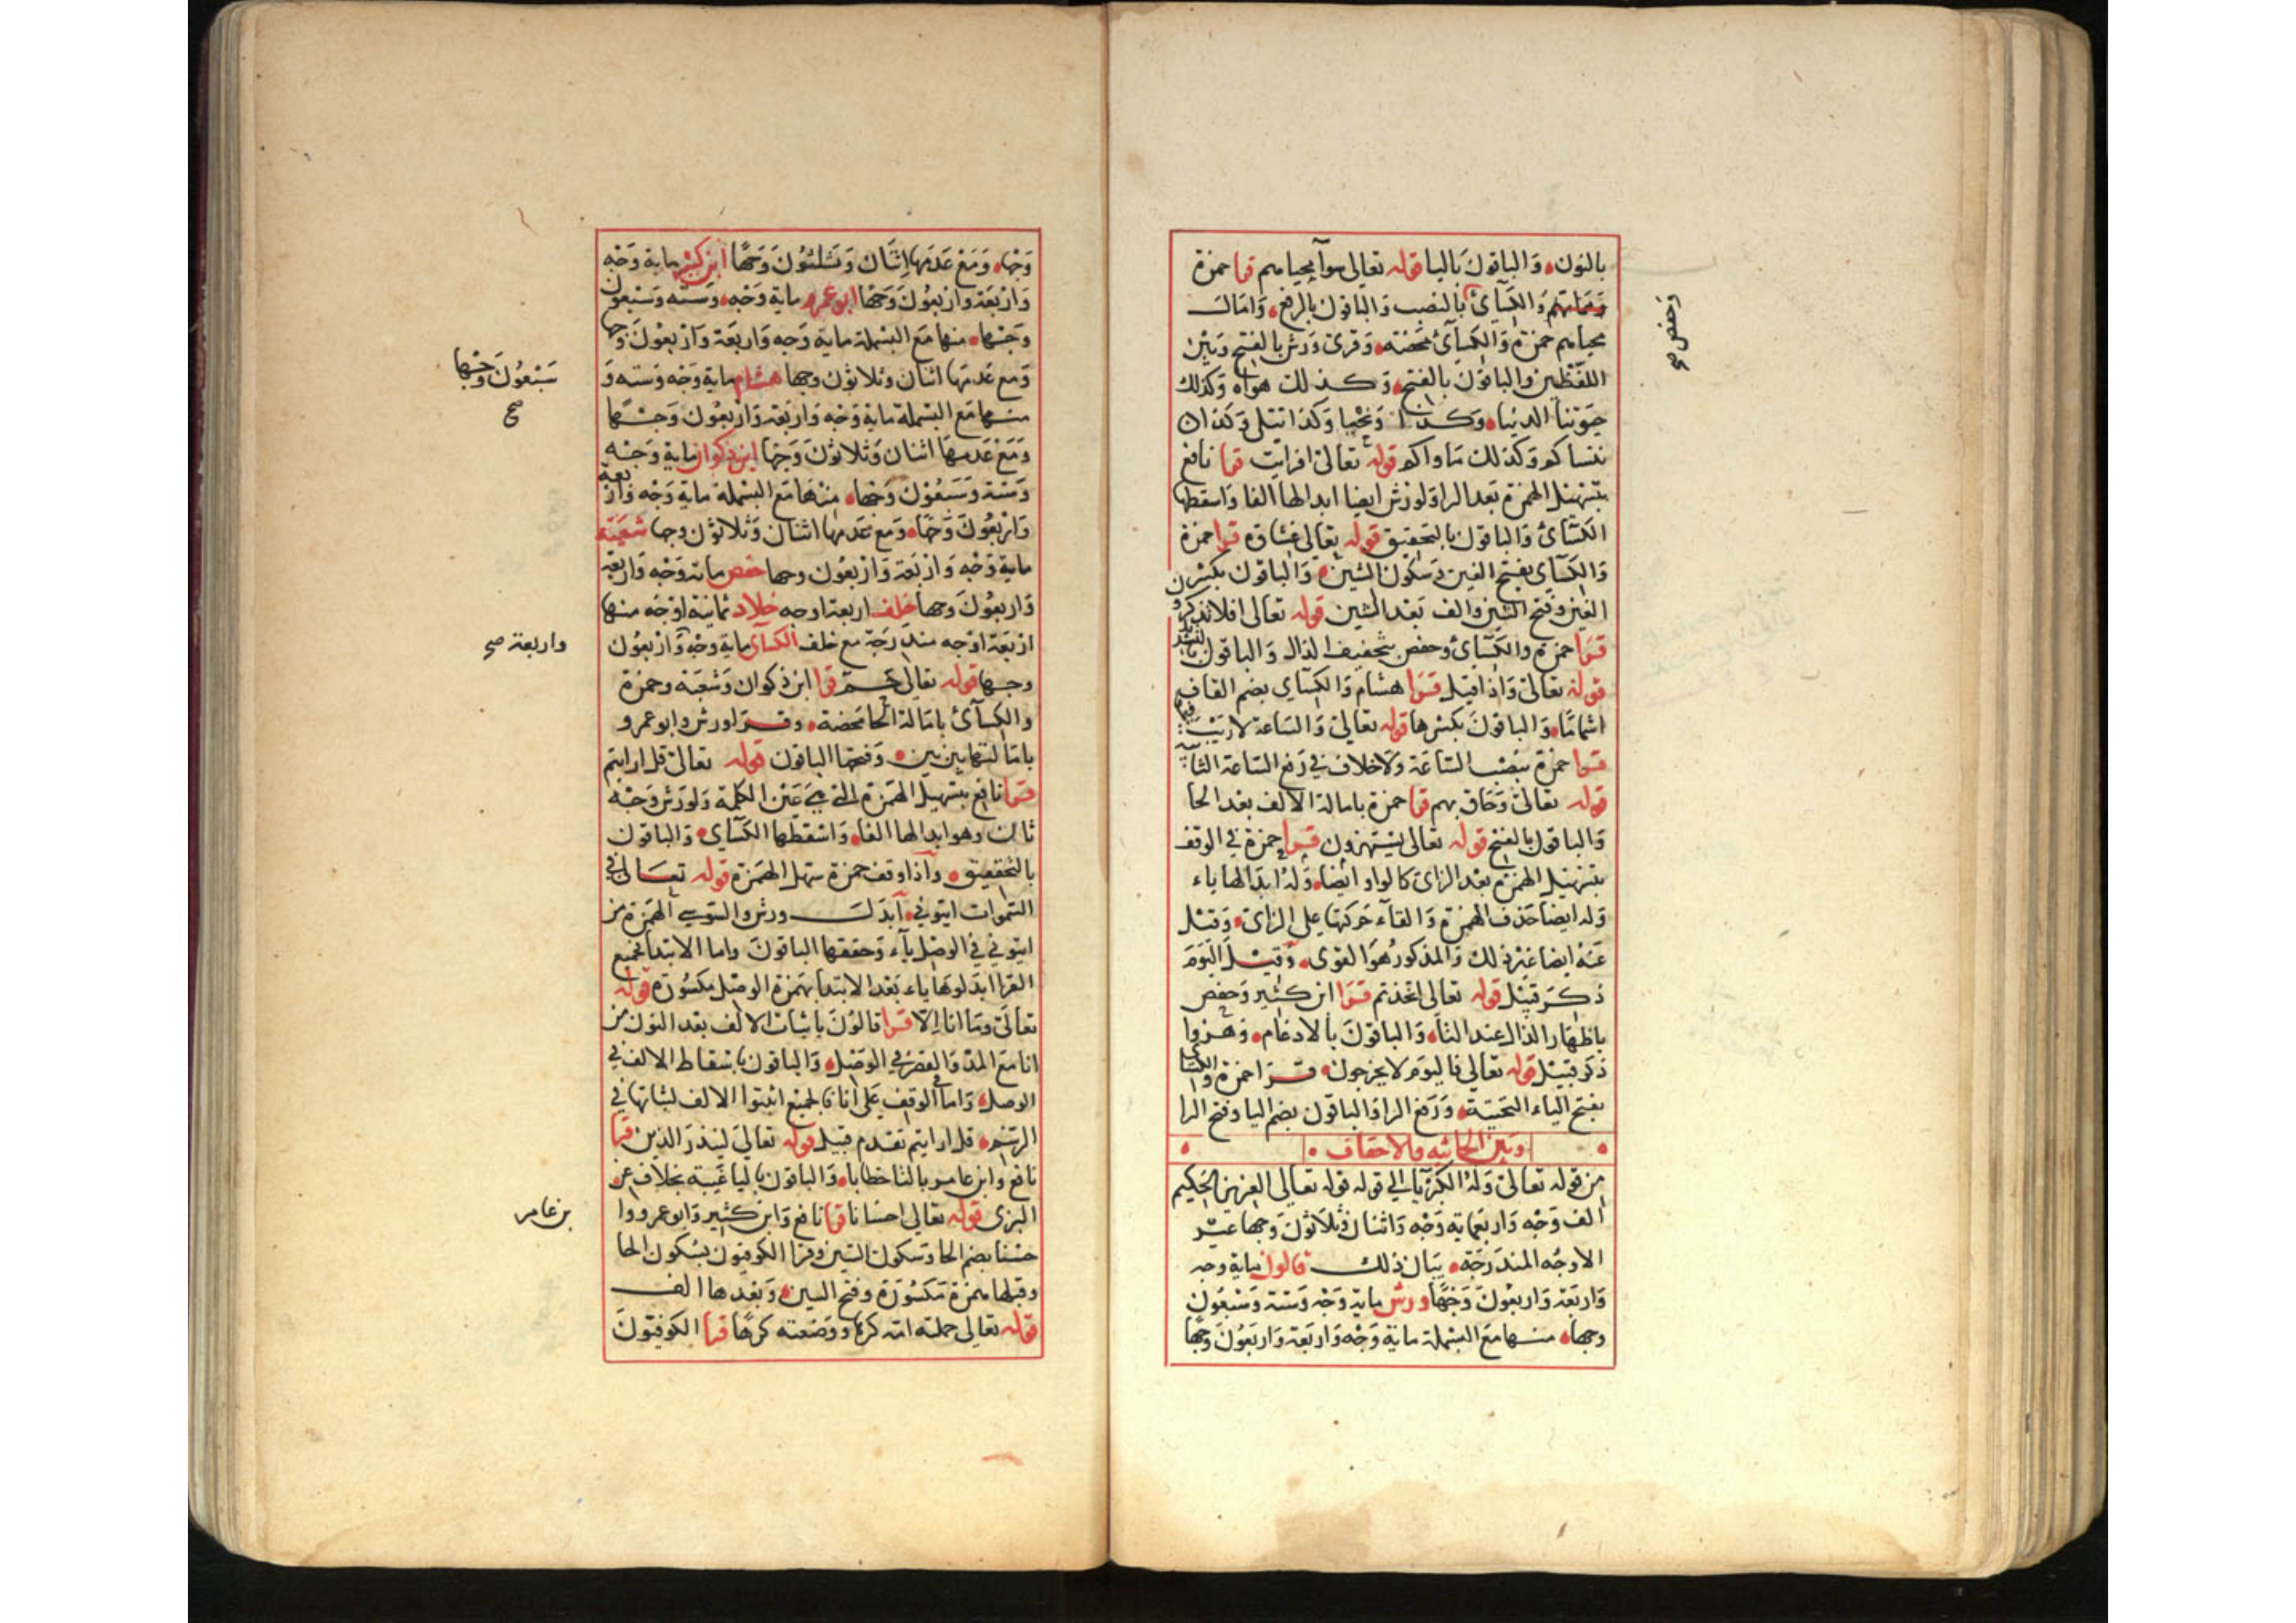 بالنون والباقون باليا قوله تعالى سوآ محياهم قرا حمزة
والكسآئ بالنصب والباقون بالرفع وامالـ
وحفص صح
محياهم حمزة والكسآئ محضة وقرئ ورش بالفتح وبين
اللفظين والباقون بالفتح وكذلك هواه وكذلك
حيوتنا الدنيا وكذا ونحيا وكذا تتلى وكذا ان
ننساكم وكذلك ماواكم قوله تعالى افرايت قرا نافع
بتسهيل الهمزة بعد الرا ولورش ايضا ابدالها الفا واسقطها
الكسآئ والباقون بالتحقيق قوله تعالى غشاوه قرا حمزة
والكسآى بفتح الغين وسكون الشين والباقون بكسر
الغين وفتح الشين والف بعد الشين قوله تعالى افلا تذكرون
قرا حمزة والكسآئ وحفص بتخفيف الذال والباقون بالتشديد
قوله تعالى واذا قيل قرا هشام والكسآي بضم القاف
اشماما والباقون بكسرها قوله تعالى والساعة لا ريب فيها
قرا حمزة بنصب الساعة ولا خلاف في رفع الساعة الثانية
قوله تعالى وحاق بهم قرا حمزة بامالة الالف بعد الحا
والباقون بالفتح قوله تعالى يستهزون قرا حمزة في الوقف
بتسهيل الهمزة بعد الزاى كالواو ايضا وله ابدالها ياء
وله ايضا حذف الهمزة والقآء حركتها على الزاى وقيل
عنه ايضا غير ذلك والمذكور هو القوى وقيل اليوم
ذكر قبيل قوله تعالى اتخذتم قرا ابن كثير وحفص
باظهار الذال عند التا والباقون بالادغام وهزوا
ذكر قبيل قوله تعالى فاليوم لا يخرجون قرا حمزة والكسآى
بفتح الياء التحتية ورفع الرا والباقون بضم اليا وفتح الرا
وبين الجاثيه والاحقاف
من قوله تعالى وله الكبريآ الى قوله قوله تعالى العزيز الحكيم
الف وجه واربعماية وجه واثنان وثلاثون وجها غير
الاوجه المندرجة بيان ذلك قالون ماية وجه
واربعة واربعون وجها ورش ماية وجه وستة وسبعون
وجها منها مع البسملة ماية وجه واربعة واربعون وجها
وجها ومع عدمها اثنان وثلثون وجها ابن كثير ماية وجه
واربعة واربعون وجها ابو عمرو ماية وجه وستة وسبعون
وجها منها مع البسملة ماية وجه واربعة واربعون وجها
ومع عدمها اثنان وثلاثون وجها هشام ماية وجه وستة و
سبعون وجها
صح
منها مع البسملة ماية وجه واربعة واربعون وجها
ومع عدمها اثنان وثلاثون وجها ابن ذكوان ماية وجه
وستة وسبعون وجها منها مع البسملة ماية وجه واربعة
واربعون وجها ومع عدمها اثنان وثلاثون وجها شعبة
ماية وجه واربعة واربعون وجها حفص ماية وجه واربعة
واربعون وجها خلف اربعة اوجه خلاد ثمانية اوجه منها
اربعة اوجه مندرجة مع خلف الكسآى ماية وجه واربعون
واربعة صح
وجها قوله تعالى حم قرا ابن ذكوان وشعبة وحمزة
والكسآئ بامالة الحا محضة وقرا ورش وابو عمرو
بامالتها بين بين وفتحها الباقون قوله تعالى قل ارايتم
قرا نافع بتسهيل الهمزة التي هي عين الكلمة ولورش وجه
ثان وهو ابدالها الفا واسقطها الكسآي والباقون
بالتحقيق واذا وقف حمزة سهل الهمزة قوله تعالى في
السموات ايتوني ابدل ورش والسوسي الهمزة من
ايتوني في الوصل يآء وحققها الباقون واما الابتدا فجميع
القرا ابدلوها ياء بعد الابتدا بهمزة الوصل مكسورة قوله
تعالى وما انا الا قرا قالون باثبات الالف بعد النون من
انا مع المد والقصر في الوصل والباقون باسقاط الالف في
الوصل واما الوقف على انا فالجميع اثبتوا الالف لثباتها في
الرسم قل ارايتم تقدم قبيل قوله تعالى لينذر الذين قرا
نافع وابن عامر بالتا خطابا والباقون باليا غيبة بخلاف عن
البزى قوله تعالى احسانا قرا نافع وابن كثير وابو عمرو وا
بن عامر
حسنا بضم الحا وسكون السين وقرا الكوفيون بسكون الحا
وقبلها همزة مكسورة وفتح السين وبعدها الف
قوله تعالى حملته امه كرها ووضعته كرها قرا الكوفيون